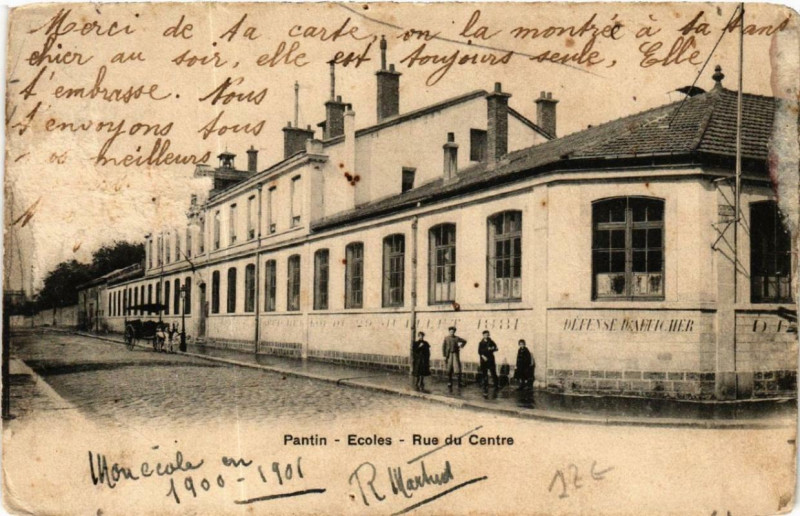 Merci de ta carte, on la montrée à ta tant
hier au soir, elle est toujours seule, Elle
t'embrasse. Nous
t'envoyons tous
nos meilleurs
DÉFENSE D'AFFICHER
1881
Pantin - Ecoles - Rue du Centre
Mon école en
1900-1901
12€